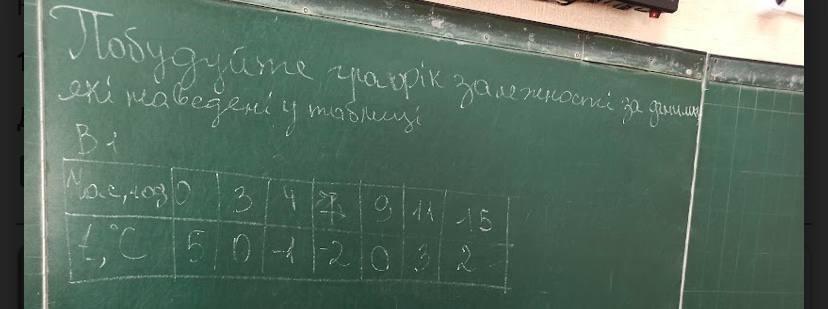 Побудуйте графік залежності за даними,
які наведені у таблиці
В 1
Час, год 0 3 4 7 9 11 15
t, °C 5 0 -1 -2 0 3 2